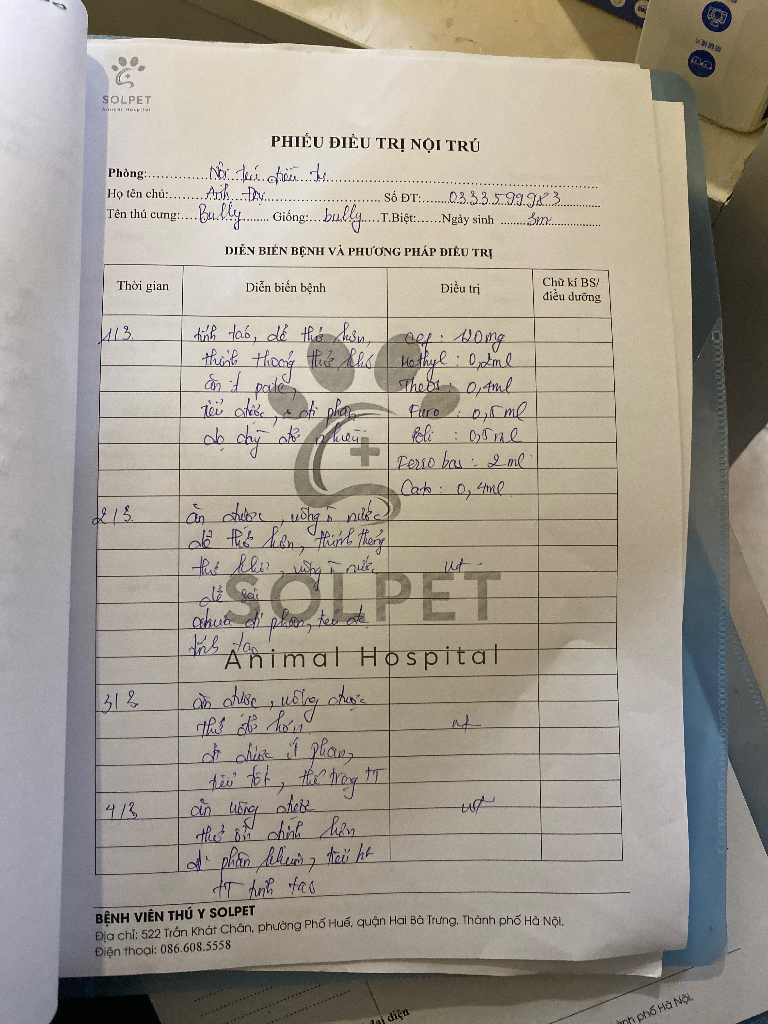 SOLPET
Animal Hospital
PHIẾU ĐIỀU TRỊ NỘI TRÚ
Phòng: Nội trú điều trị
Họ tên chủ: Anh Số ĐT: 0333599983
Tên thú cưng: Bully Giống: bully T.Biệt: Ngày sinh 3m
DIỄN BIẾN BỆNH VÀ PHƯƠNG PHÁP ĐIỀU TRỊ
Thời gian Diễn biến bệnh Điều trị Chữ kí BS/ điều dưỡng
1/3 tỉnh táo, dễ thở hơn, cef: 120mg
thỉnh thoảng thở khó Methyl: 0,2ml
ăn ít pate, Theos: 0,4ml
tiểu được, đi phân Furo: 0,5ml
dạ dày đỡ nhiều Poli: 0,5ml
Ferso bas: 2ml
Cato: 0,4ml
2/3 ăn được, uống nước
dễ thở hơn, thỉnh thoảng
thở khó, uống nước nt
dễ
chưa đi phân, tiểu
tỉnh táo
3/3 ăn được, uống được
thở đỡ hơn nt
đi được ít phân,
tiểu tốt, thể trạng TT
4/3 ăn uống được nt
thở ổn định hơn
đi phân khuôn, tiểu bt
TT tỉnh táo
SOLPET
Animal Hospital
BỆNH VIỆN THÚ Y SOLPET
Địa chỉ: 522 Trần Khát Chân, phường Phố Huế, quận Hai Bà Trưng, Thành phố Hà Nội.
Điện thoại: 086.608.5558
đại diện
ành phố Hà Nội.